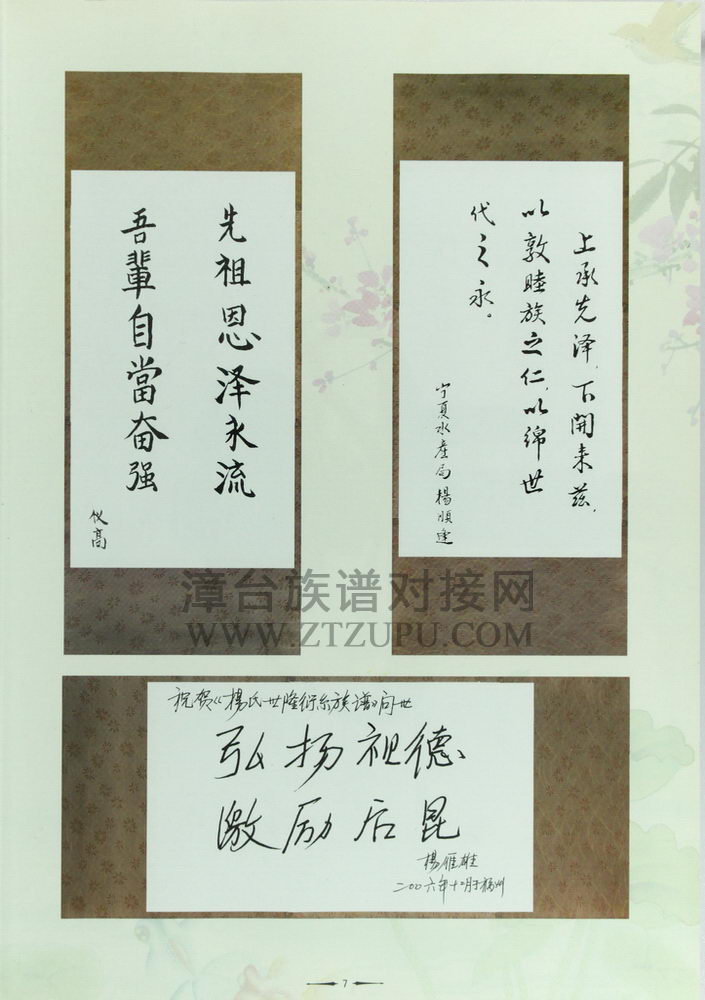 先祖恩泽永流
吾輩自當奋强
仪高
上承先泽，下開来兹，
以敦睦族之仁，以綿世
代之永。
宁夏水產局楊順逢
祝贺《楊氏世隆衍系族谱》问世
弘扬祖德
激励后昆
楊雁雄
二00六年十二月于福州
漳台族谱对接网
WWW.ZTZUPU.COM
7